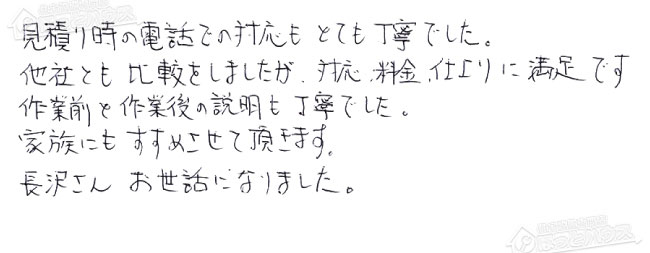 見積り時の電話での対応も とても丁寧でした。
他社とも 比較をしましたが、対応、料金、仕上りに満足です
作業前と作業後の説明も丁寧でした。
家族にもすすめさせて頂きます。
長沢さん お世話になりました。